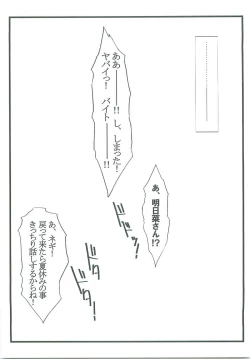 …………………
ああ――――!!
し、しまった!
ヤバイっ!
バイト――――!!
あ、明日菜さん!?
ドタ
ドタ
あ、ネギ!
戻って来たら夏休みの事
きっちり話しするからね!